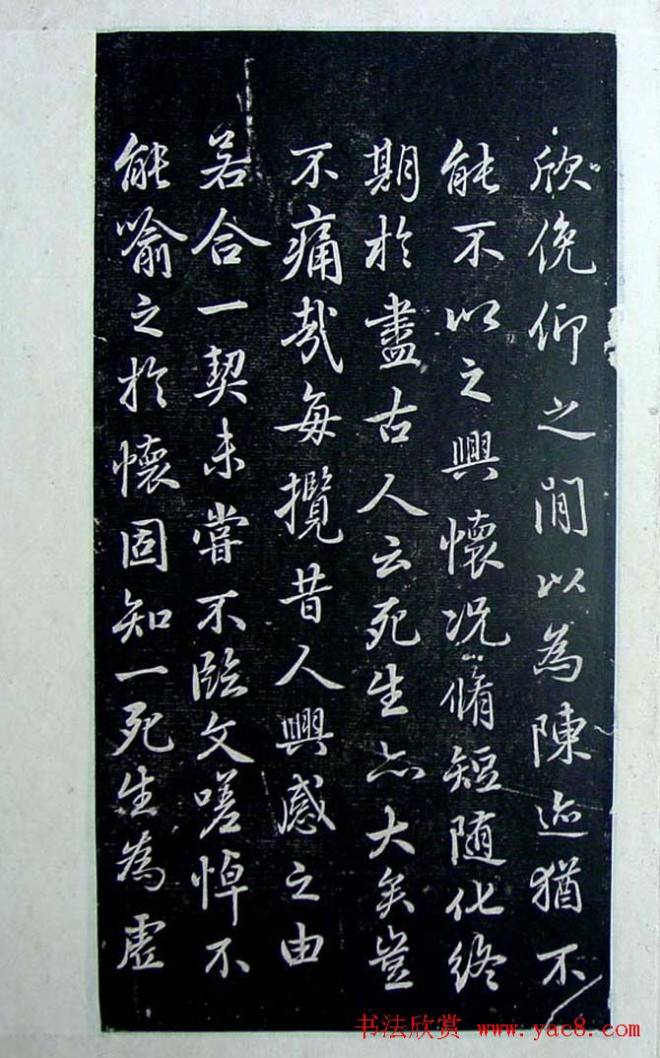 欣俛仰之間以為陳迹猶不
能不以之興懷况脩短随化終
期於盡古人云死生亦大矣豈
不痛哉每攬昔人興感之由
若合一契未嘗不臨文嗟悼不
能喻之於懷固知一死生為虛
书法欣赏 www.yac8.com